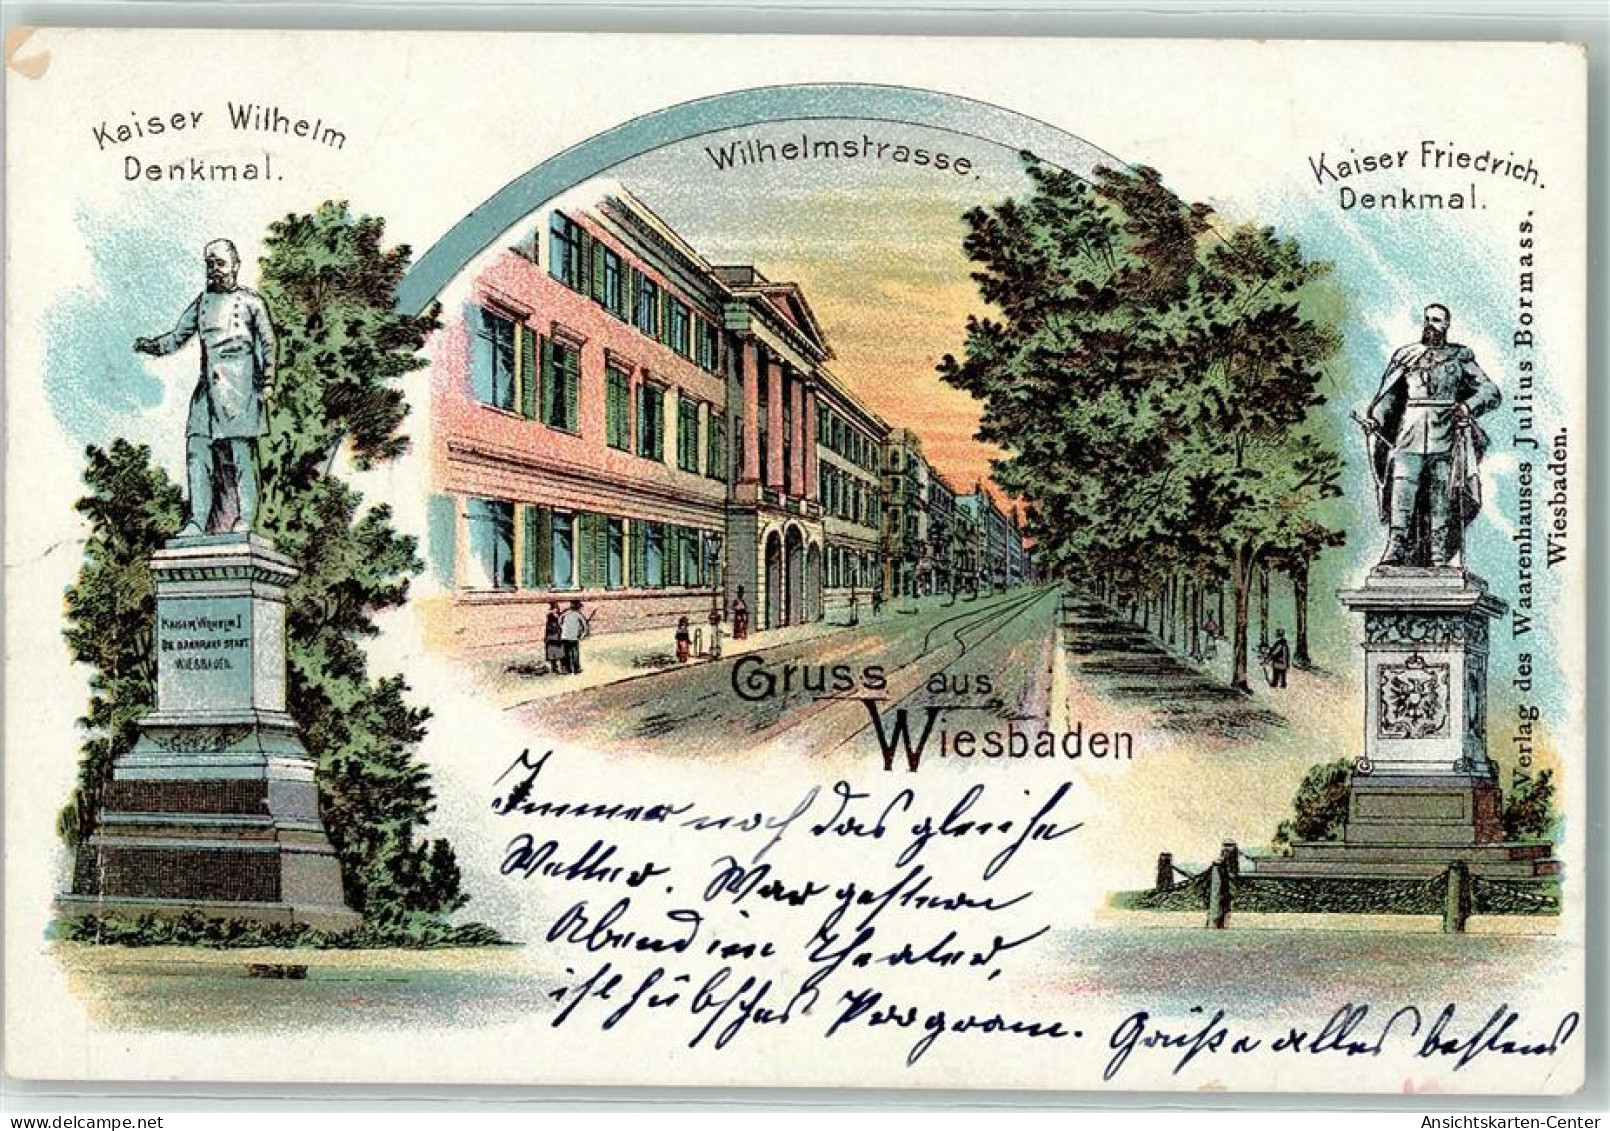 Kaiser Wilhelm
Denkmal.
Wilhelmstrasse.
Kaiser Friedrich.
Denkmal.
KAISER WILHELM I
DIE DANKBARE STADT
WIESBADEN.
Verlag des Waarenhauses Julius Bormass.
Wiesbaden.
Gruss aus
Wiesbaden
Immer noch das gleiche
Wetter. War gestern
Abend im Theater,
ist hübsches Program.
Grüße alles bestens
Ansichtskarten-Center